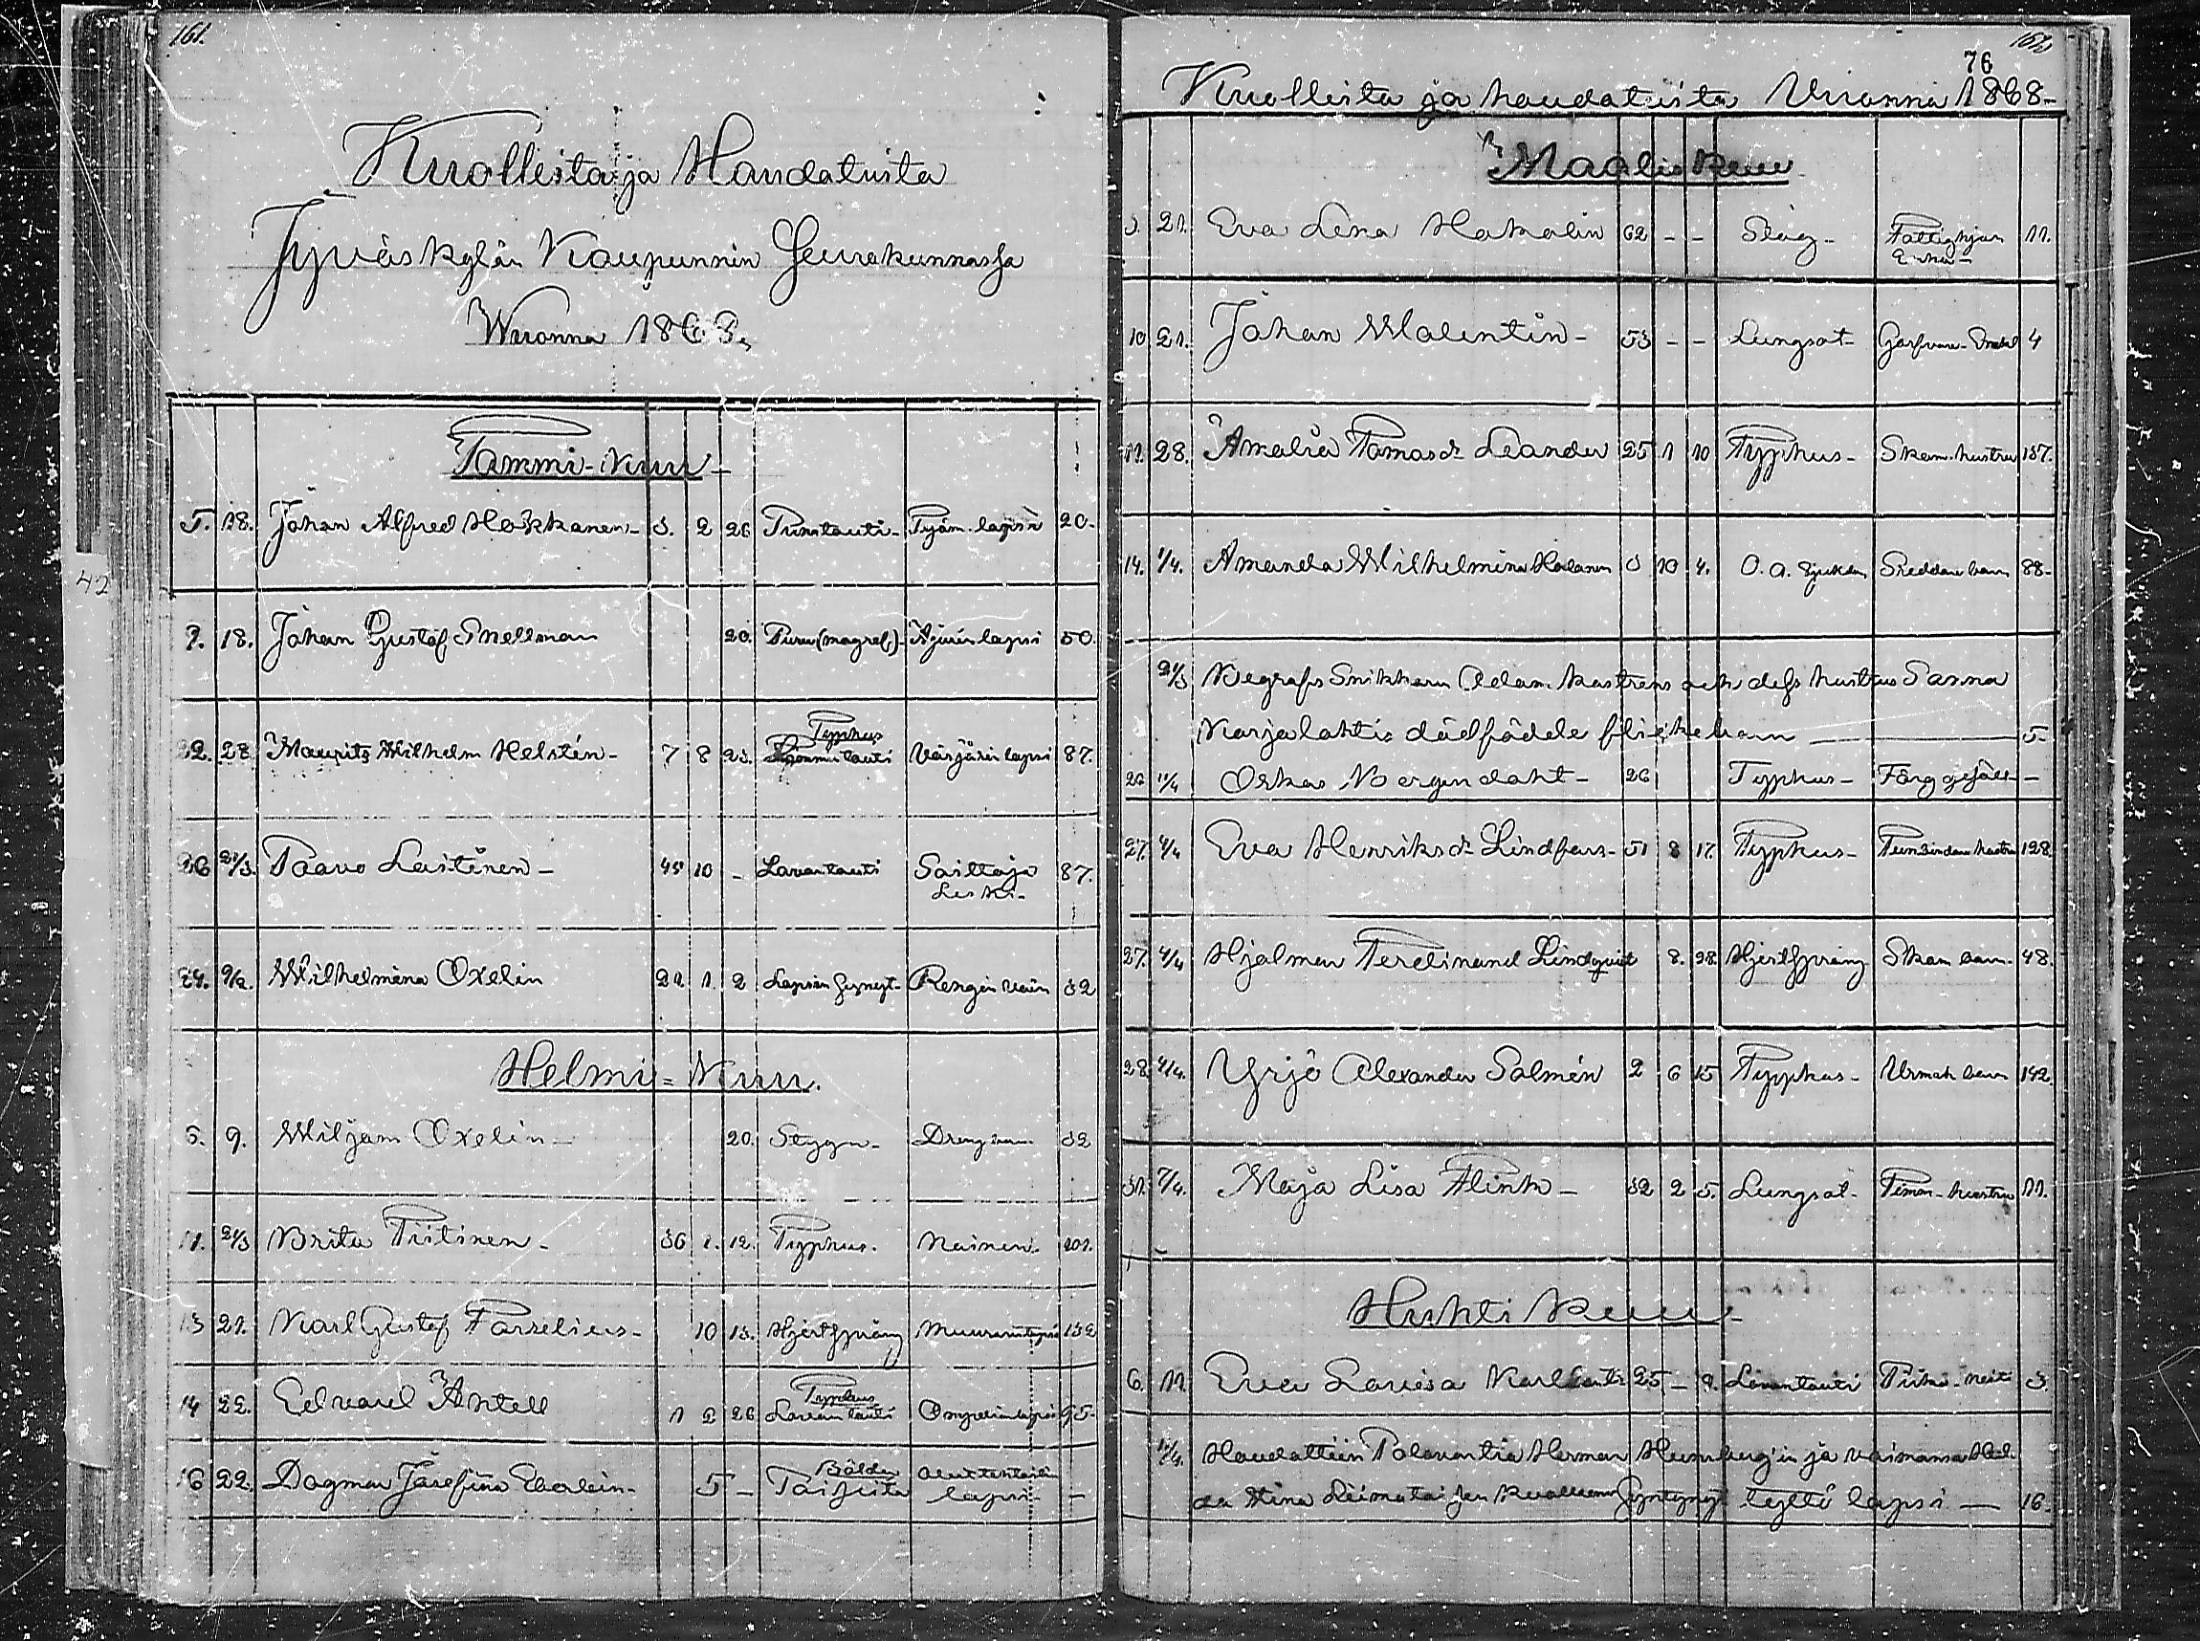 161.
Kuolleista ja Haudatuista
Jyväskylän Kaupunnin Seurakunnassa
Wuonna 1868.
Tammi-Kuu-
5. 18. Johan Alfred Hokkanen- 3. 2 26 Punatauti- Työm. lapsi 20-
9. 18. Johan Gustaf Snellman 20. Puru (magref)- Ajurin lapsi 50.
Typhus
22. 28 Maurits Wilhelm Helstén- 7 8 23. Värjärin lapsi 87.
26 21/3. Paavo Leistinen- 45 10 - Lavantauti Soittaja 87.
Leski-
24. 9/2. Wilhelmina Oxelin 22 1. 2 Lapsen synnyt- Rengin vaim 32
Helmi=Kuu.
6. 9. Wiljam Oxelin- 20. Stygn- Dreng barn 32
11. 21/3 Brita Piitinen- 36 1. 12. Typhus- Nainen- 201.
13 21. Karl Gustaf Forselius- 10 13. Hjertsprång Muurarin lapsi 132
Typhus
14 22. Edvard Antell 1 2 26 Lavantauti 95-
Bölder
16 22. Dagmar Josefina Eberlein- 5 - Paiseita
lapsi- -
42
162
76
Kuolleista ja haudatuista Vuonna 1868-
Maalis Kuu
3. 21. Eva Lena Hakalin 62 - - Slag- Fattighjon 11.
Enka-
10 21. Johan Walentin- 53 - - Lungsot- Garfvare- 4
11. 28. Amalia Tomasdr Leander 25 1 10 Typhus- Skom. hustru 137.
14. 1/4. Amanda Wilhelmina Halonen 3 10 4. O.a. sjukdom Smeddr barn 88-
21/3 Begrafs Snikkaren Adam Kastrens och dess hustrus Sanna
Karjalahtis dödfödde flickebarn 5-
26 11/4 Oskar Bergendahl- 26 Typhus- Färggesäll -
27. 4/4 Eva Henriksdr Lindfors- 51 8 17. Typhus- hustru 128.
27. 4/4 Hjalmar Ferdinand Lindqvist 8. 28. Hjertsprång Skom barn- 48.
28 4/4. Yrjö Alexander Salmén 2 6 15 Typhus- Urmak barn 142.
31. 7/4. Maja Lisa Flink- 32 2 5. Lungsot- Timm- hustru 11.
Huhti Kuu-
6. 11. Eva Lovisa 25 - 9. Lavantauti Piika- neit 3.
Haudattiin Palovartia Herman ja vaimonsa Hel-
da Stina Kuolleena Syntynyt tyttö lapsi — 16.